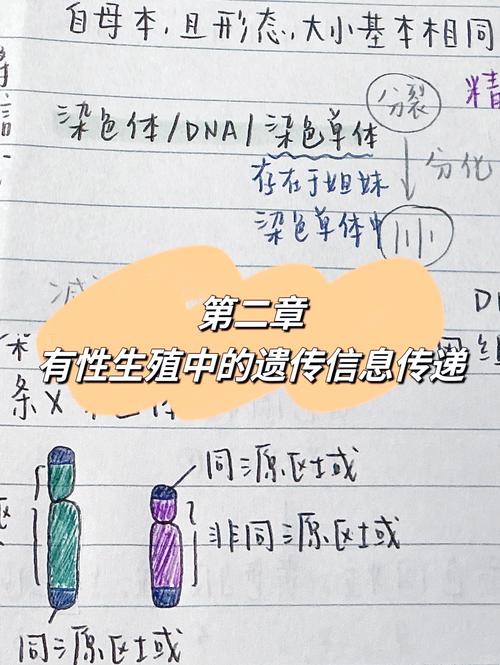 自母本，且形态、大小基本相同
精
分裂
染色体/DNA/染色单体
分化
存在于姐妹
染色单体中
第二章
有性生殖中的遗传信息传递
条X
同源区域
非同源区域
同源区域